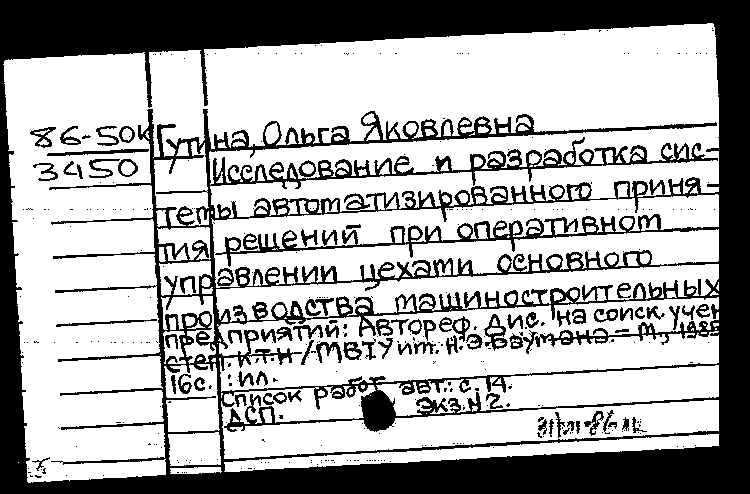 86-50к Гутина, Ольга Яковлевна
3450 Исследование и разработка сис-
темы автоматизированного приня-
тия решений при оперативном
управлении цехами основного
производства машиностроительных
предприятий: Автореф. дис. на соиск. учен
степ. к.т.н / МВТУ им. Н.Э. Баумана. - М., 1985
16с. : ил.
Список работ авт.: с. 14.
ДСП. Экз. N 2.